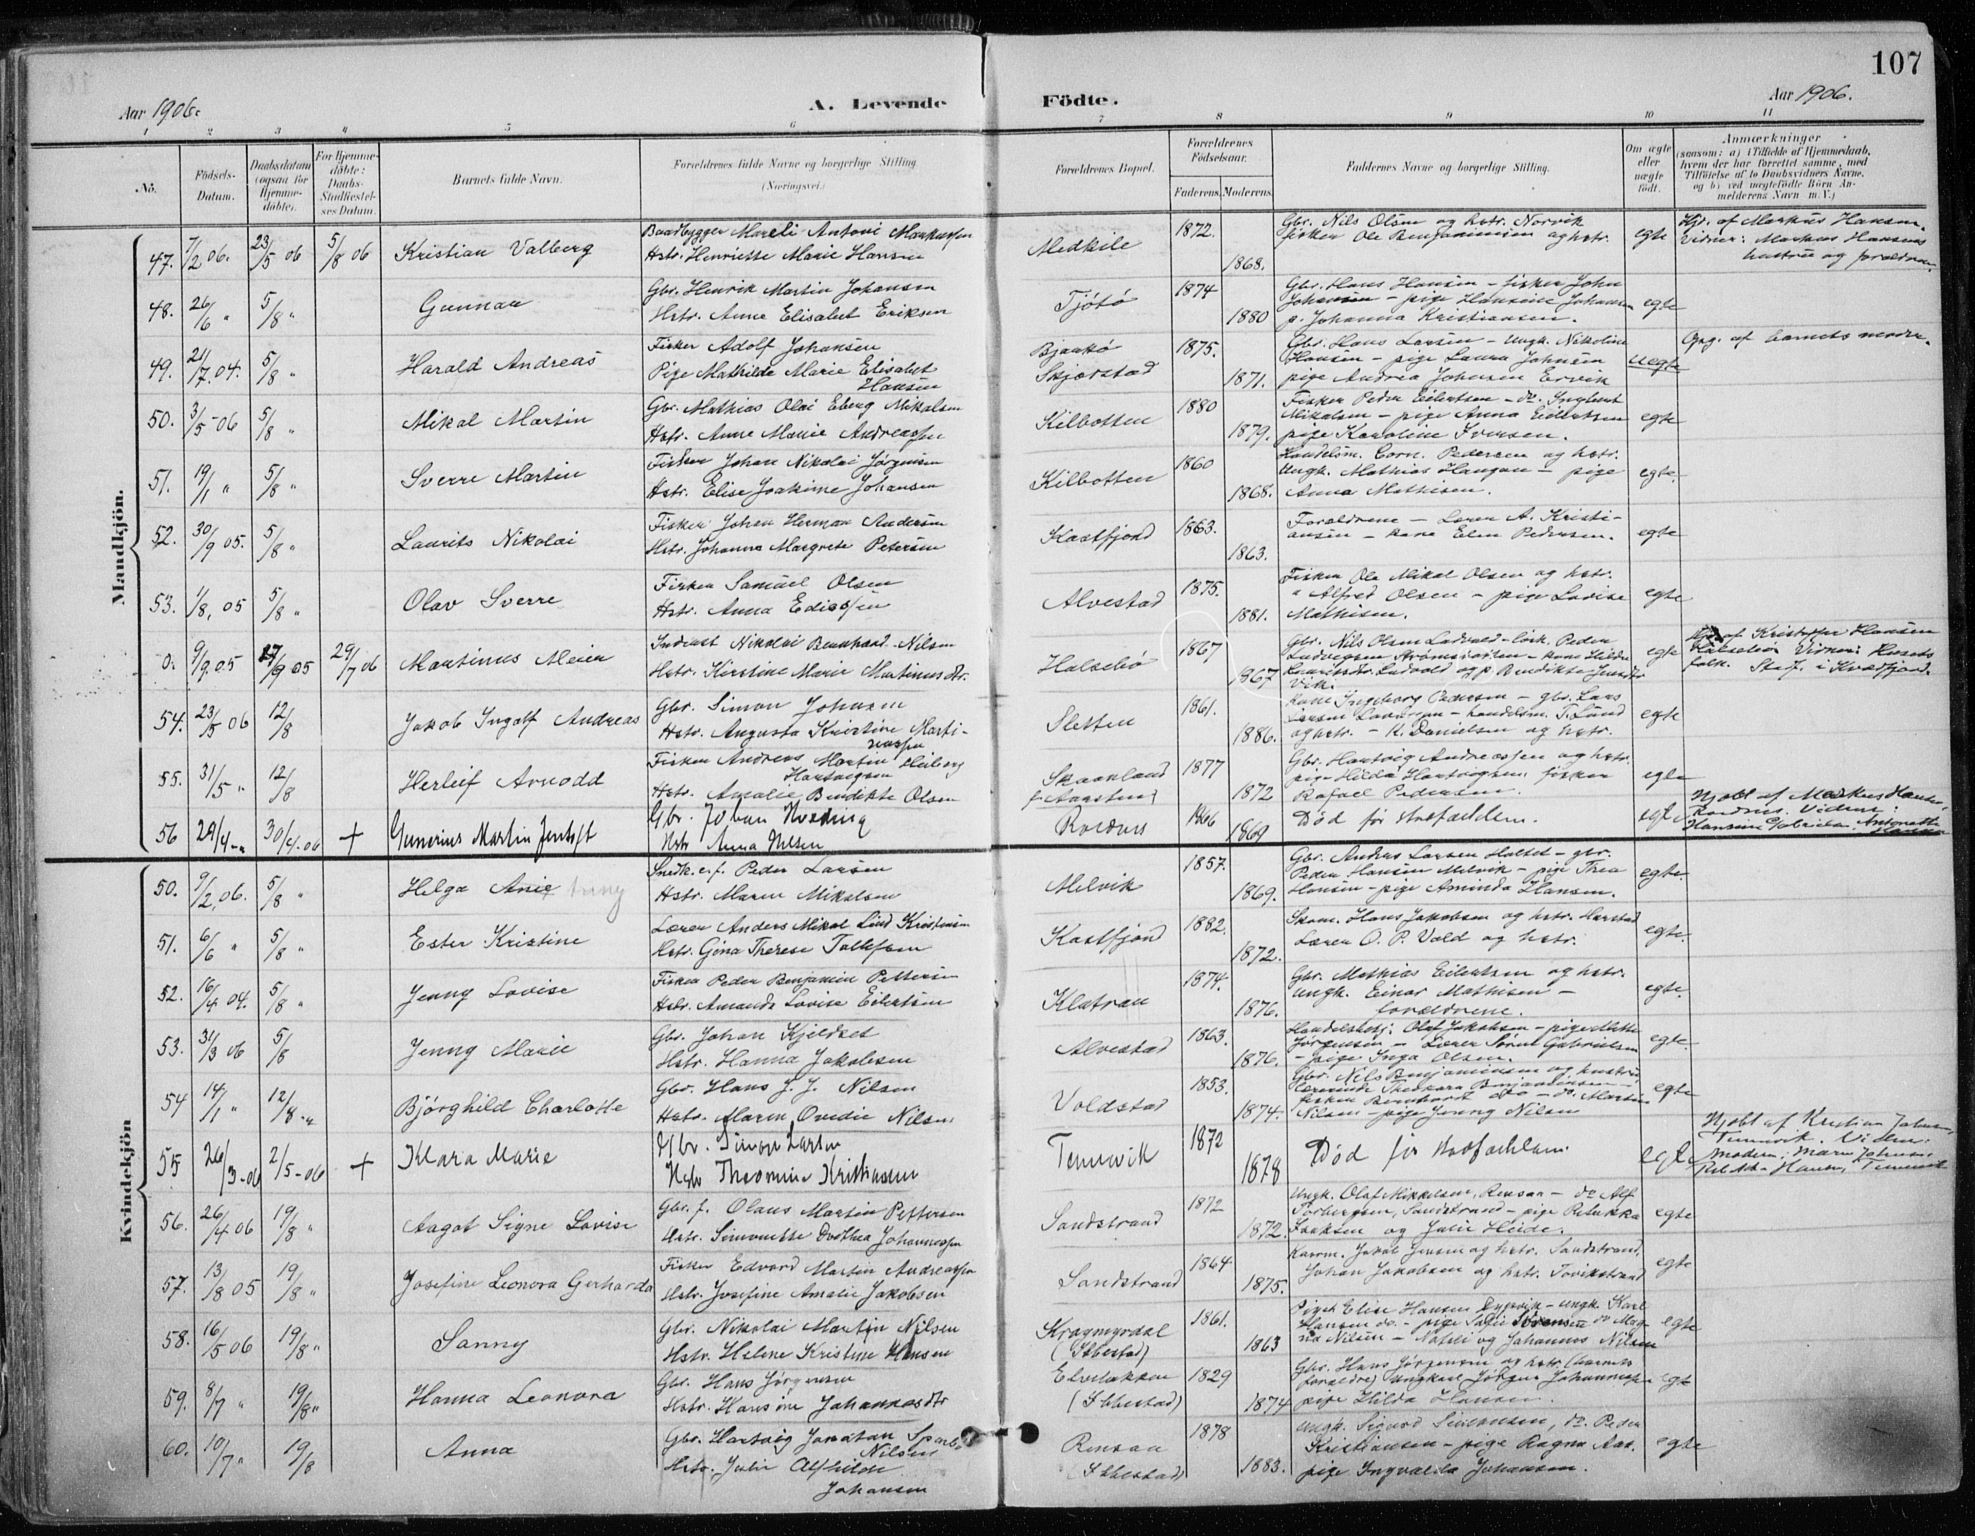 107
Aar 1906.
A. Levende
Födte.
Aar 1906.
1 2 3 4 5 6 7 8 9 10 11
No.
Födsels-
Datum.
Daabsdatum
(ogsaa for
Hjemme-
döbte).
For Hjemme-
döbte:
Daabs-
Stadfæstel-
ses Datum.
Barnets fulde Navn.
Forældrenes fulde Navne og borgerlige Stilling
(Næringsvei.)
Forældrenes Bopæl.
Forældrenes
Födselsaar.
Faderens. Moderens.
Faddernes Navne og borgerlige Stilling.
Om ægte
eller
uægte
födt.
Anmærkninger
(saasom: a) i Tilfælde af Hjemmedaab,
hvem der har forrettet samme, med
Tilföielse af to Daabsvidners Navne,
og b) ved uægtefödte Börn An-
melderens Navn m. V.)
Mandkjön.
47. 7/2 06. 23/5 06 5/8 06 Kristian Valberg
Baadbygger Mareli Antoni Markussen
Hstr. Henriette Marie Hansen
Medkile 1872. 1868.
Gbr. Nils Olsen og hstr. Norvik
fisker Ole Benjaminsen og hstr.
egte
Hjd. af Markus Hansen.
Vidner: Markus Hansens
hustru og forældrene
48. 26/6 " 5/8 " Gunnar
Gbr. Henrik Martin Johansen
Hstr. Anne Elisabet Eriksen
Tjötö 1874 1880
Gbr. Hans Hansen - fisker John
Johansen - pige Hansine Johansen
p. Johanna Kristiansen.
egte
49. 21/7. 04. 5/8 " Harald Andreas
Fisker Adolf Johansen
Pige Mathilde Marie Elisabet
Hansen
Bjarkö
Skjærstad
1875. 1871.
Gbr. Hans Larsen - Ungk. Nikoline
Hansen - pige Laura Johnsen
pige Andrea Johnsen Ervik
uegte
Opg. af barnets moder.
50. 3/5 - 06 5/8 " Mikal Martin
Gbr. Mathias Olai Eberg Mikalsen
Hstr. Anne Marie Andreassen
Kilbotten 1880 1879.
Fisker Peder Eilertsen - do. Ingbert
Mikalsen - pige Anna Eilertsen
pige Karoline Iversen.
egte
51. 19/1 " 5/8 " Sverre Martin
Fisker Johan Nikolai Jørgensen
Hstr. Elise Joakime Johansen
Kilbotten 1860 1868.
Handelsm. Corn. Pedersen og hstr.
Ungk. Mathias Haugan - pige
Anna Mathisen.
egte.
52. 30/9 05. 5/8 " Laurits Nikolai
Fisker Johan Herman Andersen
Hstr. Johanna Margrete Petersen
Kastfjord 1863. 1863.
Forældrene - Lærer A. Kristi-
ansen - kone Elen Pedersen.
egte
53. 1/8, 05 5/8 " Olav Sverre
Fisker Samuel Olsen
Hstr. Anna Edissen
Alvestad 1875. 1881.
Fisker Ole Mikal Olsen og hstr.
" Alfred Olsen - pige Lovise
Mathisen.
egte
0. 9/9. 05 17/9 05 29/7 06 Martinus Meier
Inderst Nikolai Bernhard Nilsen
Hstr. Kirstine Marie Martinusdtr.
Halsebö 1867 1867
Gbr. Nils Olsen Ludvold - Peder
Ludvigsen
Vik.
egte
Hjd. af Kristoffer Hansen
Halsebö Vidner: Husets
folk. Stadf. i Kvædfjord.
54. 23/5 06 12/8 Jakob Ingolf Andreas
Gbr. Simon Johnsen
Hstr. Augusta Kristine Marti-
niussen
Sletten 1861. 1886.
Kone Ingeborg Pedersen - gbr. Lars
Larsen - handelsm. T. Lund
og hstr. - K. Danielsen og hstr.
egte
55. 31/5 " 12/8 Herleif Arnodd
Fisker Andreas Martin Heiberg
Hartvigsen
Hstr. Amalie Bendikte Olsen
Skaanland
1877 1872
Gbr. Hartvig Andreassen og hstr.
pige Hilda Hartvigsen, fisker
Rafael Pedersen.
egte
56 29/4 - " 30/4 - 06 + Gunerius Martin Jentoft
Gbr. Johan Hveding
Hstr Anna Nilsen
Rordnes 1866 1869
Död før stadfæstelsen.
egte
Hjdbt af Markus Hansen,
Rordnes. Vidner:
Hansine Gabrielsen. Antonette
Hansen
Kvindekjön
50. 9/2, 06. 5/8 " Helga Anie Jenny
Snedk. e. f. Peder Larsen
Hstr. Maren Mikalsen
Melvik 1857. 1869.
Gbr. Anders Larsen Halset - gbr.
Peder Hansen Melvik - pige Thea
Hansen - pige Aminda Hansen.
egte.
51. 6/6 " 5/8 " Ester Kristine
Lærer Anders Mikal Lind Kristiansen
Hstr. Gina Therese Tollefsen
Kastfjord 1882. 1872.
Skom. Hans Jakobsen og hstr. Harstad
Lærer O. P. Vold og hstr.
egte.
52. 16/4 04. 5/8 " Jenny Lovise
Fisker Peder Benjamin Pettersen
Hstr. Amanda Lovise Eilertsen
Klatran 1874. 1876.
Gbr. Mathias Eilertsen og hstr.
Ungk. Einar Mathisen -
forældrene.
egte.
53. 31/3 06 5/8 Jenny Marie
Gbr. Johan Kjeldset
Hstr. Hanna Jakobsen
Alvestad 1863. 1876.
Handelsbetj. Olaf Jakobsen - pige Mette
Jørgensen - Lærer Søren Gabrielsen
- pige Inga Olsen.
egte.
54 14/1 " 12/8 - " Bjørghild Charlotte
Gbr. Hans J. J. Nilsen
Hstr. Maren Ovidie Nilsen
Voldstad 1853. 1874.
Gbr. Nils Benjaminsen og hustru
lærerinde Theodora Benjaminsen -
fisker Bernhard do - do. Martin
Nilsen - pige Jenny Nilsen
egte
55 26/3 - 06 2/5 - 06 + Klara Marie
Gbr. Simon Larsen
Hstr Theomine Kristiansen
Tennevik 1872 1878
Död før stadfæstelsen.
egte
Hjdbt af Kristian Johnsen,
Tennevik. Vidner:
Moderen, Maren Johnsen,
Hansen, Tennevik
56. 26/4 06 19/8 " Aagot Signe Lovise
Gbr. f. Olaus Martin Pettersen
Hstr. Simonette Dorthea Johannessen
Sandstrand 1872 1872.
Ungk. Olaf Mikkelsen, Rensaa - do Alf
Torbergsen, Sandstrand - pige Rebekka
Isaksen og Julie Heide.
egte
57. 13/8 05 19/8 " Josefine Leonora Gerharda
Fisker Edvard Martin Andreassen
Hstr. Josefine Amalie Jakobsen
Sandstrand 1864 1875.
Jakob Jensen og hstr. Sandstrand,
Johan Jakobsen og hstr. Tovikstrand
egte
58. 16/5 06 19/8 " Sanny
Gbr. Nikolai Martin Nilsen
Hstr. Helene Kristine Hansen
Kragmyrdal
(Ibbestad)
1861. 1863
Pige Elise Hansen Dyrvik - ungk. Karl
Hansen do. - pige Sofie Sørensen do Mag-
na Nilsen - Natali og Johannes Nilsen
egte
59. 8/7 " 19/8 " Hanna Leonora
Gbr. Hans Jørgensen
Hstr. Hansine Johannesdtr
(Ibbestad)
1829 1874
Gbr. Hans Jørgensen og hstr. (barnets
forældre) Ungkarl Jörgen Johannessen
pige Hilda Hansen.
egte
60. 10/7 " 19/8 Anna
Gbr. Hartvig Jonatan Sparbo
Nilsen
Hstr. Julie Alfhilde
Johansen
Rensaa
(Ibbestad)
1878 1883.
Ungk. Sigurd Simonsen, do. Peder
Kristiansen - pige Ragna Aas.
pige Ingvalda Johansen.
egte